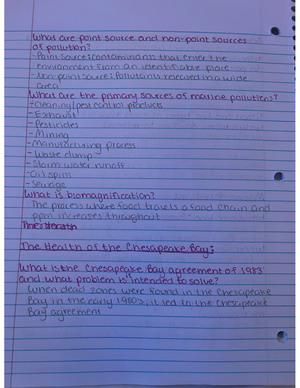 What are point source and non-point sources
of pollution?
-Point source: contaminants that enter the
environment from an identifiable place
-Non-point source: Pollutants released in a wide
area
What are the primary sources of marine pollutions?
-Cleaning/pest control products
-Exhaust
-Pesticides
-Mining
-Manufacturing process
-Waste dump
-Storm water runoff
-Oil spills
-Sewage
What is biomagnification?
The process where food travels a food chain and
ppm increases throughout
The Health of the Chesapeake Bay:
What is the Chesapeake Bay agreement of 1983
and what problem is intended to solve?
When dead zones were found in the Chesapeake
Bay in the early 1980's, it led to the Chesapeake
Bay agreement